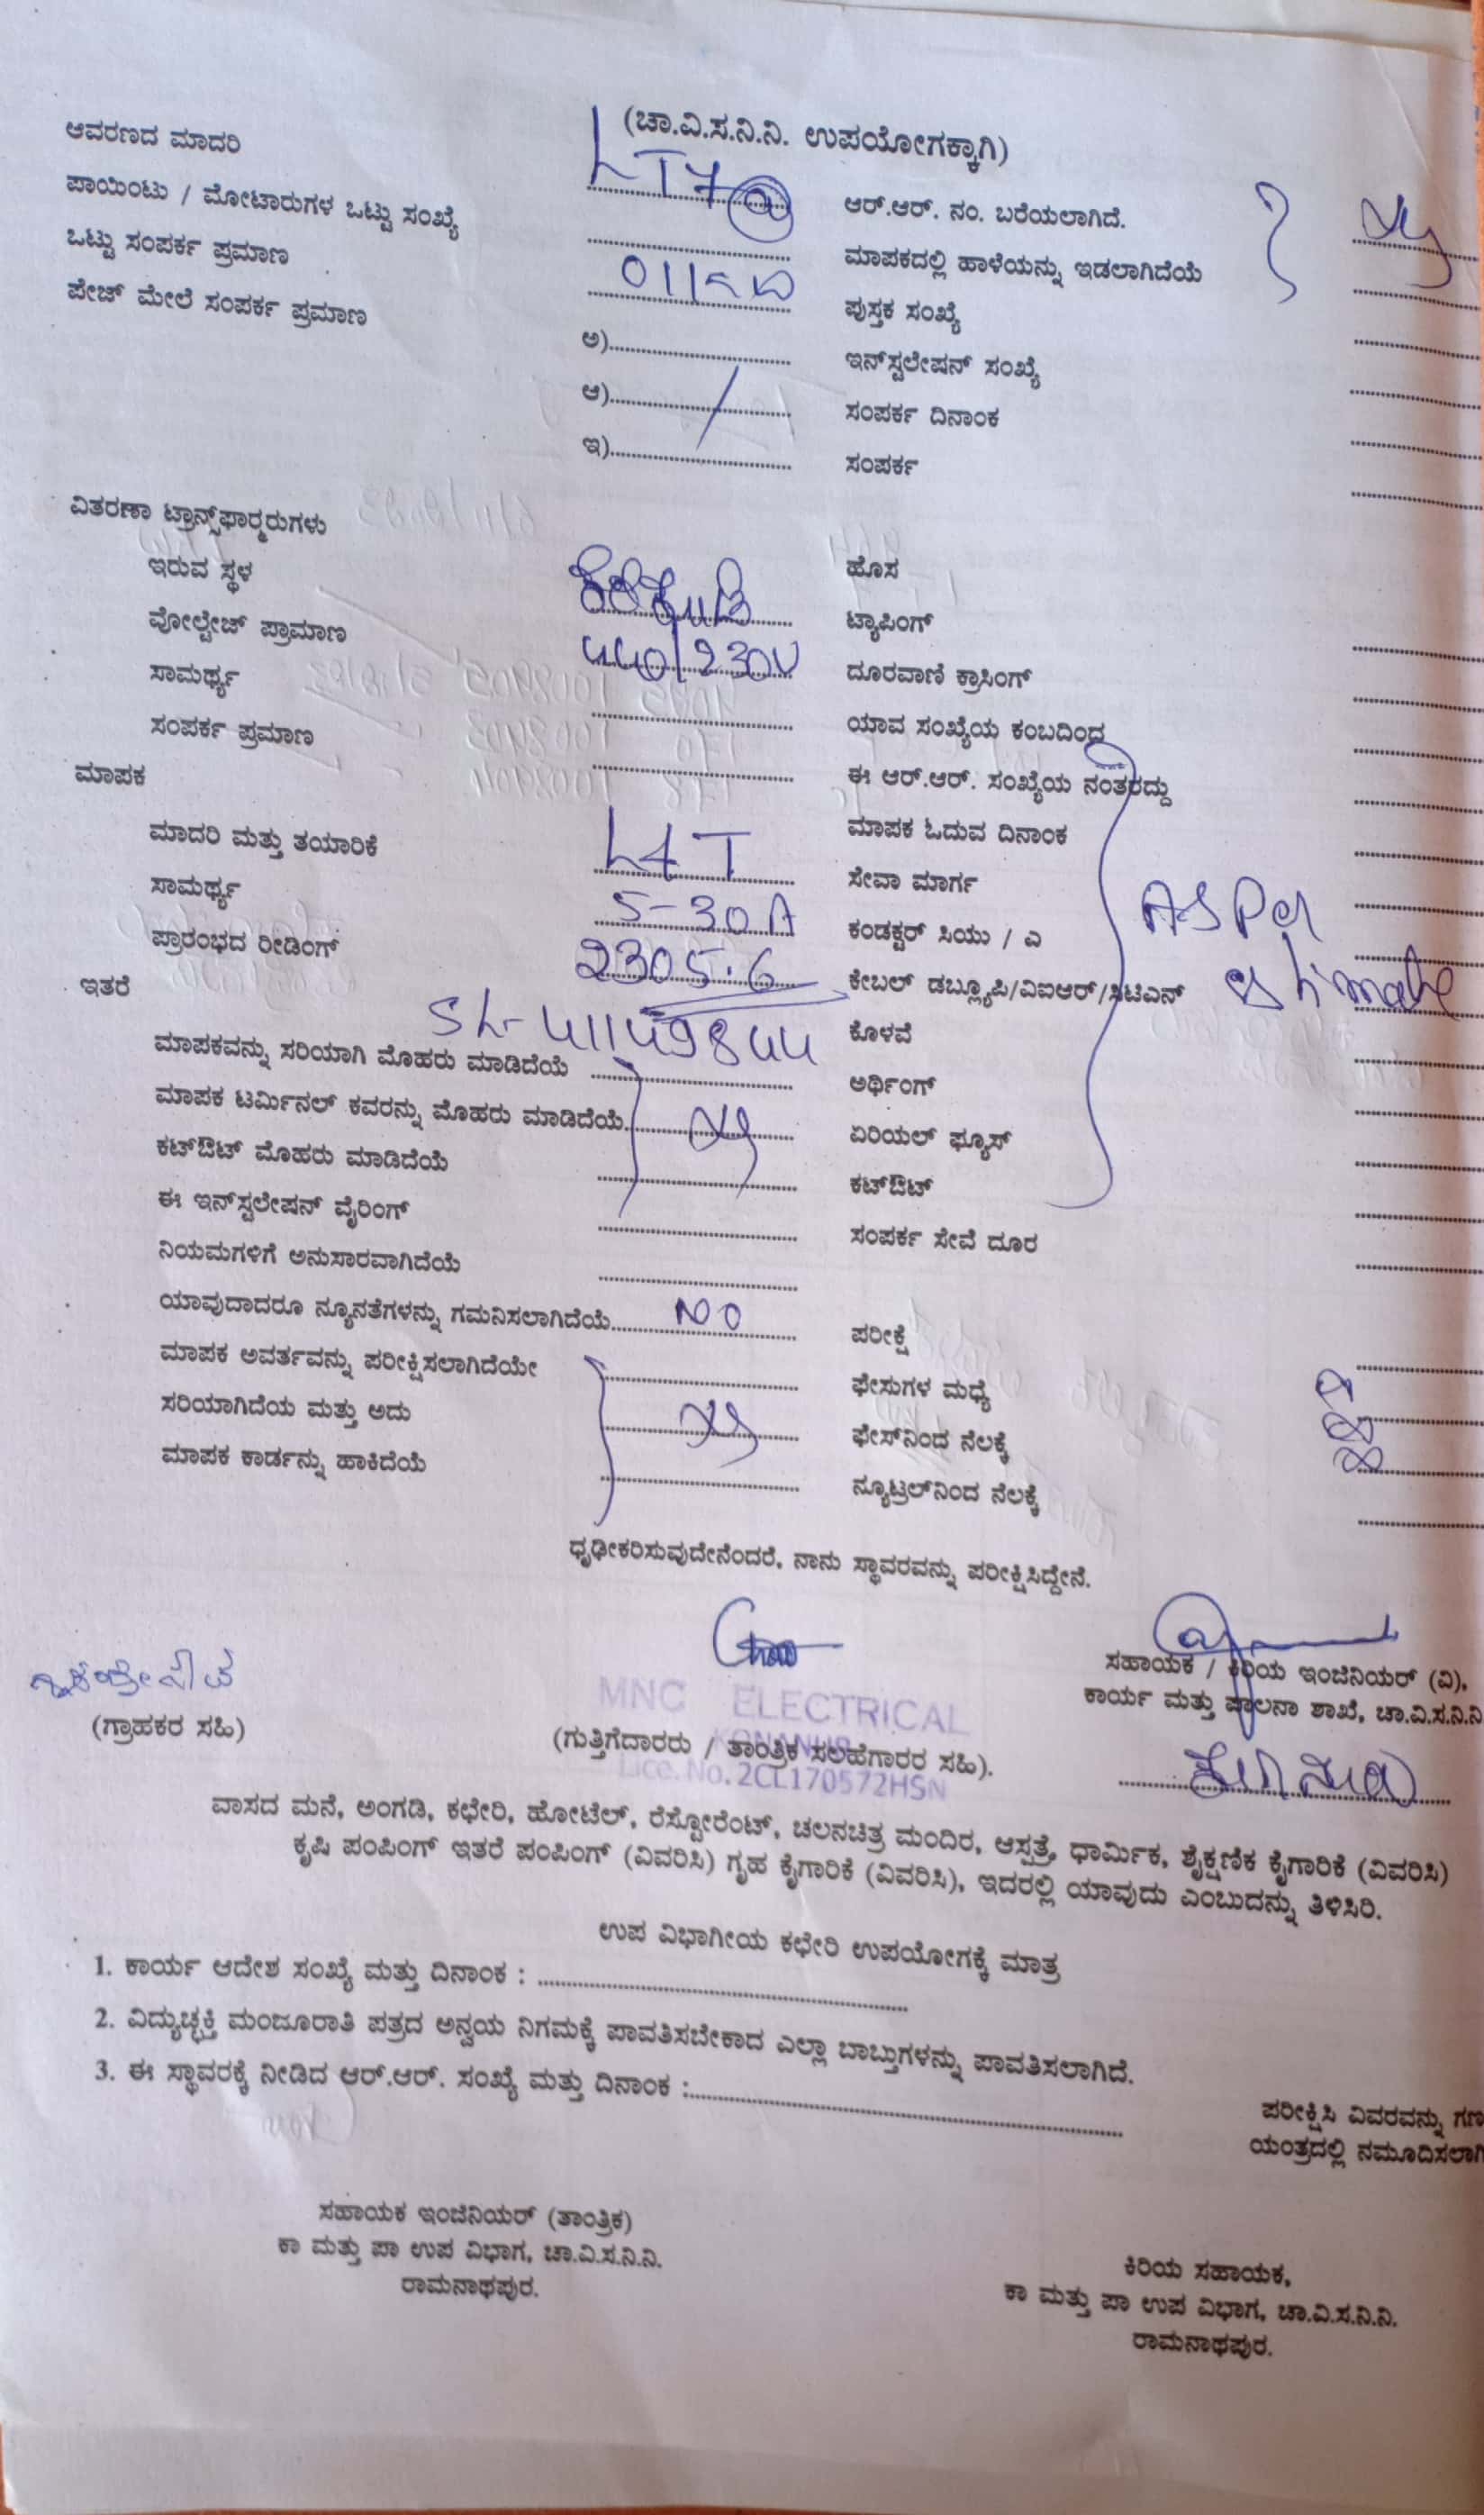 (ಚಾ.ವಿ.ಸ.ನಿ.ನಿ. ಉಪಯೋಗಕ್ಕಾಗಿ)
ಆವರಣದ ಮಾದರಿ LT7(a)
ಪಾಯಿಂಟು / ಮೋಟಾರುಗಳ ಒಟ್ಟು ಸಂಖ್ಯೆ
ಒಟ್ಟು ಸಂಪರ್ಕ ಪ್ರಮಾಣ
ಪೇಜ್ ಮೇಲೆ ಸಂಪರ್ಕ ಪ್ರಮಾಣ
ಅ)
ಆ)
ಇ)
ಆರ್.ಆರ್. ನಂ. ಬರೆಯಲಾಗಿದೆ.
ಮಾಪಕದಲ್ಲಿ ಹಾಳೆಯನ್ನು ಇಡಲಾಗಿದೆಯೆ
ಪುಸ್ತಕ ಸಂಖ್ಯೆ
ಇನ್‌ಸ್ಟಲೇಷನ್ ಸಂಖ್ಯೆ
ಸಂಪರ್ಕ ದಿನಾಂಕ
ಸಂಪರ್ಕ
ವಿತರಣಾ ಟ್ರಾನ್ಸ್‌ಫಾರ್ಮರುಗಳು
ಇರುವ ಸ್ಥಳ
ವೋಲ್ಟೇಜ್ ಪ್ರಾಮಾಣ 440/230V
ಸಾಮರ್ಥ್ಯ
ಸಂಪರ್ಕ ಪ್ರಮಾಣ
ಮಾಪಕ
ಮಾದರಿ ಮತ್ತು ತಯಾರಿಕೆ L&T
ಸಾಮರ್ಥ್ಯ 5-30A
ಪ್ರಾರಂಭದ ರೀಡಿಂಗ್ 2305.6
ಇತರೆ
SL-41149844
ಹೊಸ
ಟ್ಯಾಪಿಂಗ್
ದೂರವಾಣಿ ಕ್ರಾಸಿಂಗ್
ಯಾವ ಸಂಖ್ಯೆಯ ಕಂಬದಿಂದ
ಈ ಆರ್.ಆರ್. ಸಂಖ್ಯೆಯ ನಂತರದ್ದು
ಮಾಪಕ ಓದುವ ದಿನಾಂಕ
ಸೇವಾ ಮಾರ್ಗ
ಕಂಡಕ್ಟರ್ ಸಿಯು / ಎ
ಕೇಬಲ್ ಡಬ್ಲ್ಯೂಪಿ/ವಿಐಆರ್/ಸಿಟಿಎನ್
ಕೊಳವೆ
ಅರ್ಥಿಂಗ್
ಏರಿಯಲ್ ಫ್ಯೂಸ್
ಕಟ್‌ಔಟ್
ಸಂಪರ್ಕ ಸೇವೆ ದೂರ
AS Per
estimate
ಮಾಪಕವನ್ನು ಸರಿಯಾಗಿ ಮೊಹರು ಮಾಡಿದೆಯೆ
ಮಾಪಕ ಟರ್ಮಿನಲ್ ಕವರನ್ನು ಮೊಹರು ಮಾಡಿದೆಯೆ
ಕಟ್‌ಔಟ್ ಮೊಹರು ಮಾಡಿದೆಯೆ
ಈ ಇನ್‌ಸ್ಟಲೇಷನ್ ವೈರಿಂಗ್
ನಿಯಮಗಳಿಗೆ ಅನುಸಾರವಾಗಿದೆಯೆ
ಯಾವುದಾದರೂ ನ್ಯೂನತೆಗಳನ್ನು ಗಮನಿಸಲಾಗಿದೆಯೆ NO
ಮಾಪಕ ಅವರ್ತವನ್ನು ಪರೀಕ್ಷಿಸಲಾಗಿದೆಯೇ
ಸರಿಯಾಗಿದೆಯ ಮತ್ತು ಅದು
ಮಾಪಕ ಕಾರ್ಡನ್ನು ಹಾಕಿದೆಯೆ
ಪರೀಕ್ಷೆ
ಫೇಸುಗಳ ಮಧ್ಯೆ
ಫೇಸ್‌ನಿಂದ ನೆಲಕ್ಕೆ
ನ್ಯೂಟ್ರಲ್‌ನಿಂದ ನೆಲಕ್ಕೆ
ಧೃಢೀಕರಿಸುವುದೇನೆಂದರೆ, ನಾನು ಸ್ಥಾವರವನ್ನು ಪರೀಕ್ಷಿಸಿದ್ದೇನೆ.
(ಗ್ರಾಹಕರ ಸಹಿ)
MNC ELECTRICAL
KONANUR
(ಗುತ್ತಿಗೆದಾರರು / ತಾಂತ್ರಿಕ ಸಲಹೆಗಾರರ ಸಹಿ).
Lice.No.2CL170572HSN
ಸಹಾಯಕ / ಕಿರಿಯ ಇಂಜಿನಿಯರ್ (ವಿ),
ಕಾರ್ಯ ಮತ್ತು ಪಾಲನಾ ಶಾಖೆ, ಚಾ.ವಿ.ಸ.ನಿ.ನಿ
ವಾಸದ ಮನೆ, ಅಂಗಡಿ, ಕಛೇರಿ, ಹೋಟೆಲ್, ರೆಸ್ಟೋರೆಂಟ್, ಚಲನಚಿತ್ರ ಮಂದಿರ, ಆಸ್ಪತ್ರೆ, ಧಾರ್ಮಿಕ, ಶೈಕ್ಷಣಿಕ ಕೈಗಾರಿಕೆ (ವಿವರಿಸಿ)
ಕೃಷಿ ಪಂಪಿಂಗ್ ಇತರೆ ಪಂಪಿಂಗ್ (ವಿವರಿಸಿ) ಗೃಹ ಕೈಗಾರಿಕೆ (ವಿವರಿಸಿ), ಇದರಲ್ಲಿ ಯಾವುದು ಎಂಬುದನ್ನು ತಿಳಿಸಿರಿ.
ಉಪ ವಿಭಾಗೀಯ ಕಛೇರಿ ಉಪಯೋಗಕ್ಕೆ ಮಾತ್ರ
1. ಕಾರ್ಯ ಆದೇಶ ಸಂಖ್ಯೆ ಮತ್ತು ದಿನಾಂಕ :
2. ವಿದ್ಯುಚ್ಛಕ್ತಿ ಮಂಜೂರಾತಿ ಪತ್ರದ ಅನ್ವಯ ನಿಗಮಕ್ಕೆ ಪಾವತಿಸಬೇಕಾದ ಎಲ್ಲಾ ಬಾಬ್ತುಗಳನ್ನು ಪಾವತಿಸಲಾಗಿದೆ.
3. ಈ ಸ್ಥಾವರಕ್ಕೆ ನೀಡಿದ ಆರ್.ಆರ್. ಸಂಖ್ಯೆ ಮತ್ತು ದಿನಾಂಕ :
ಪರೀಕ್ಷಿಸಿ ವಿವರವನ್ನು ಗಣ
ಯಂತ್ರದಲ್ಲಿ ನಮೂದಿಸಲಾಗಿ
ಸಹಾಯಕ ಇಂಜಿನಿಯರ್ (ತಾಂತ್ರಿಕ)
ಕಾ ಮತ್ತು ಪಾ ಉಪ ವಿಭಾಗ, ಚಾ.ವಿ.ಸ.ನಿ.ನಿ.
ರಾಮನಾಥಪುರ.
ಕಿರಿಯ ಸಹಾಯಕ,
ಕಾ ಮತ್ತು ಪಾ ಉಪ ವಿಭಾಗ, ಚಾ.ವಿ.ಸ.ನಿ.ನಿ.
ರಾಮನಾಥಪುರ.